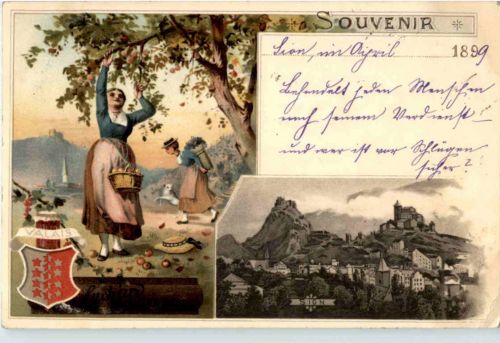 SOUVENIR
Sion, im April 1899
Behandelt jeden Menschen
nach seinem Verdienst!
und wer ist vor Schlägen
sicher?
VALAIS
SION